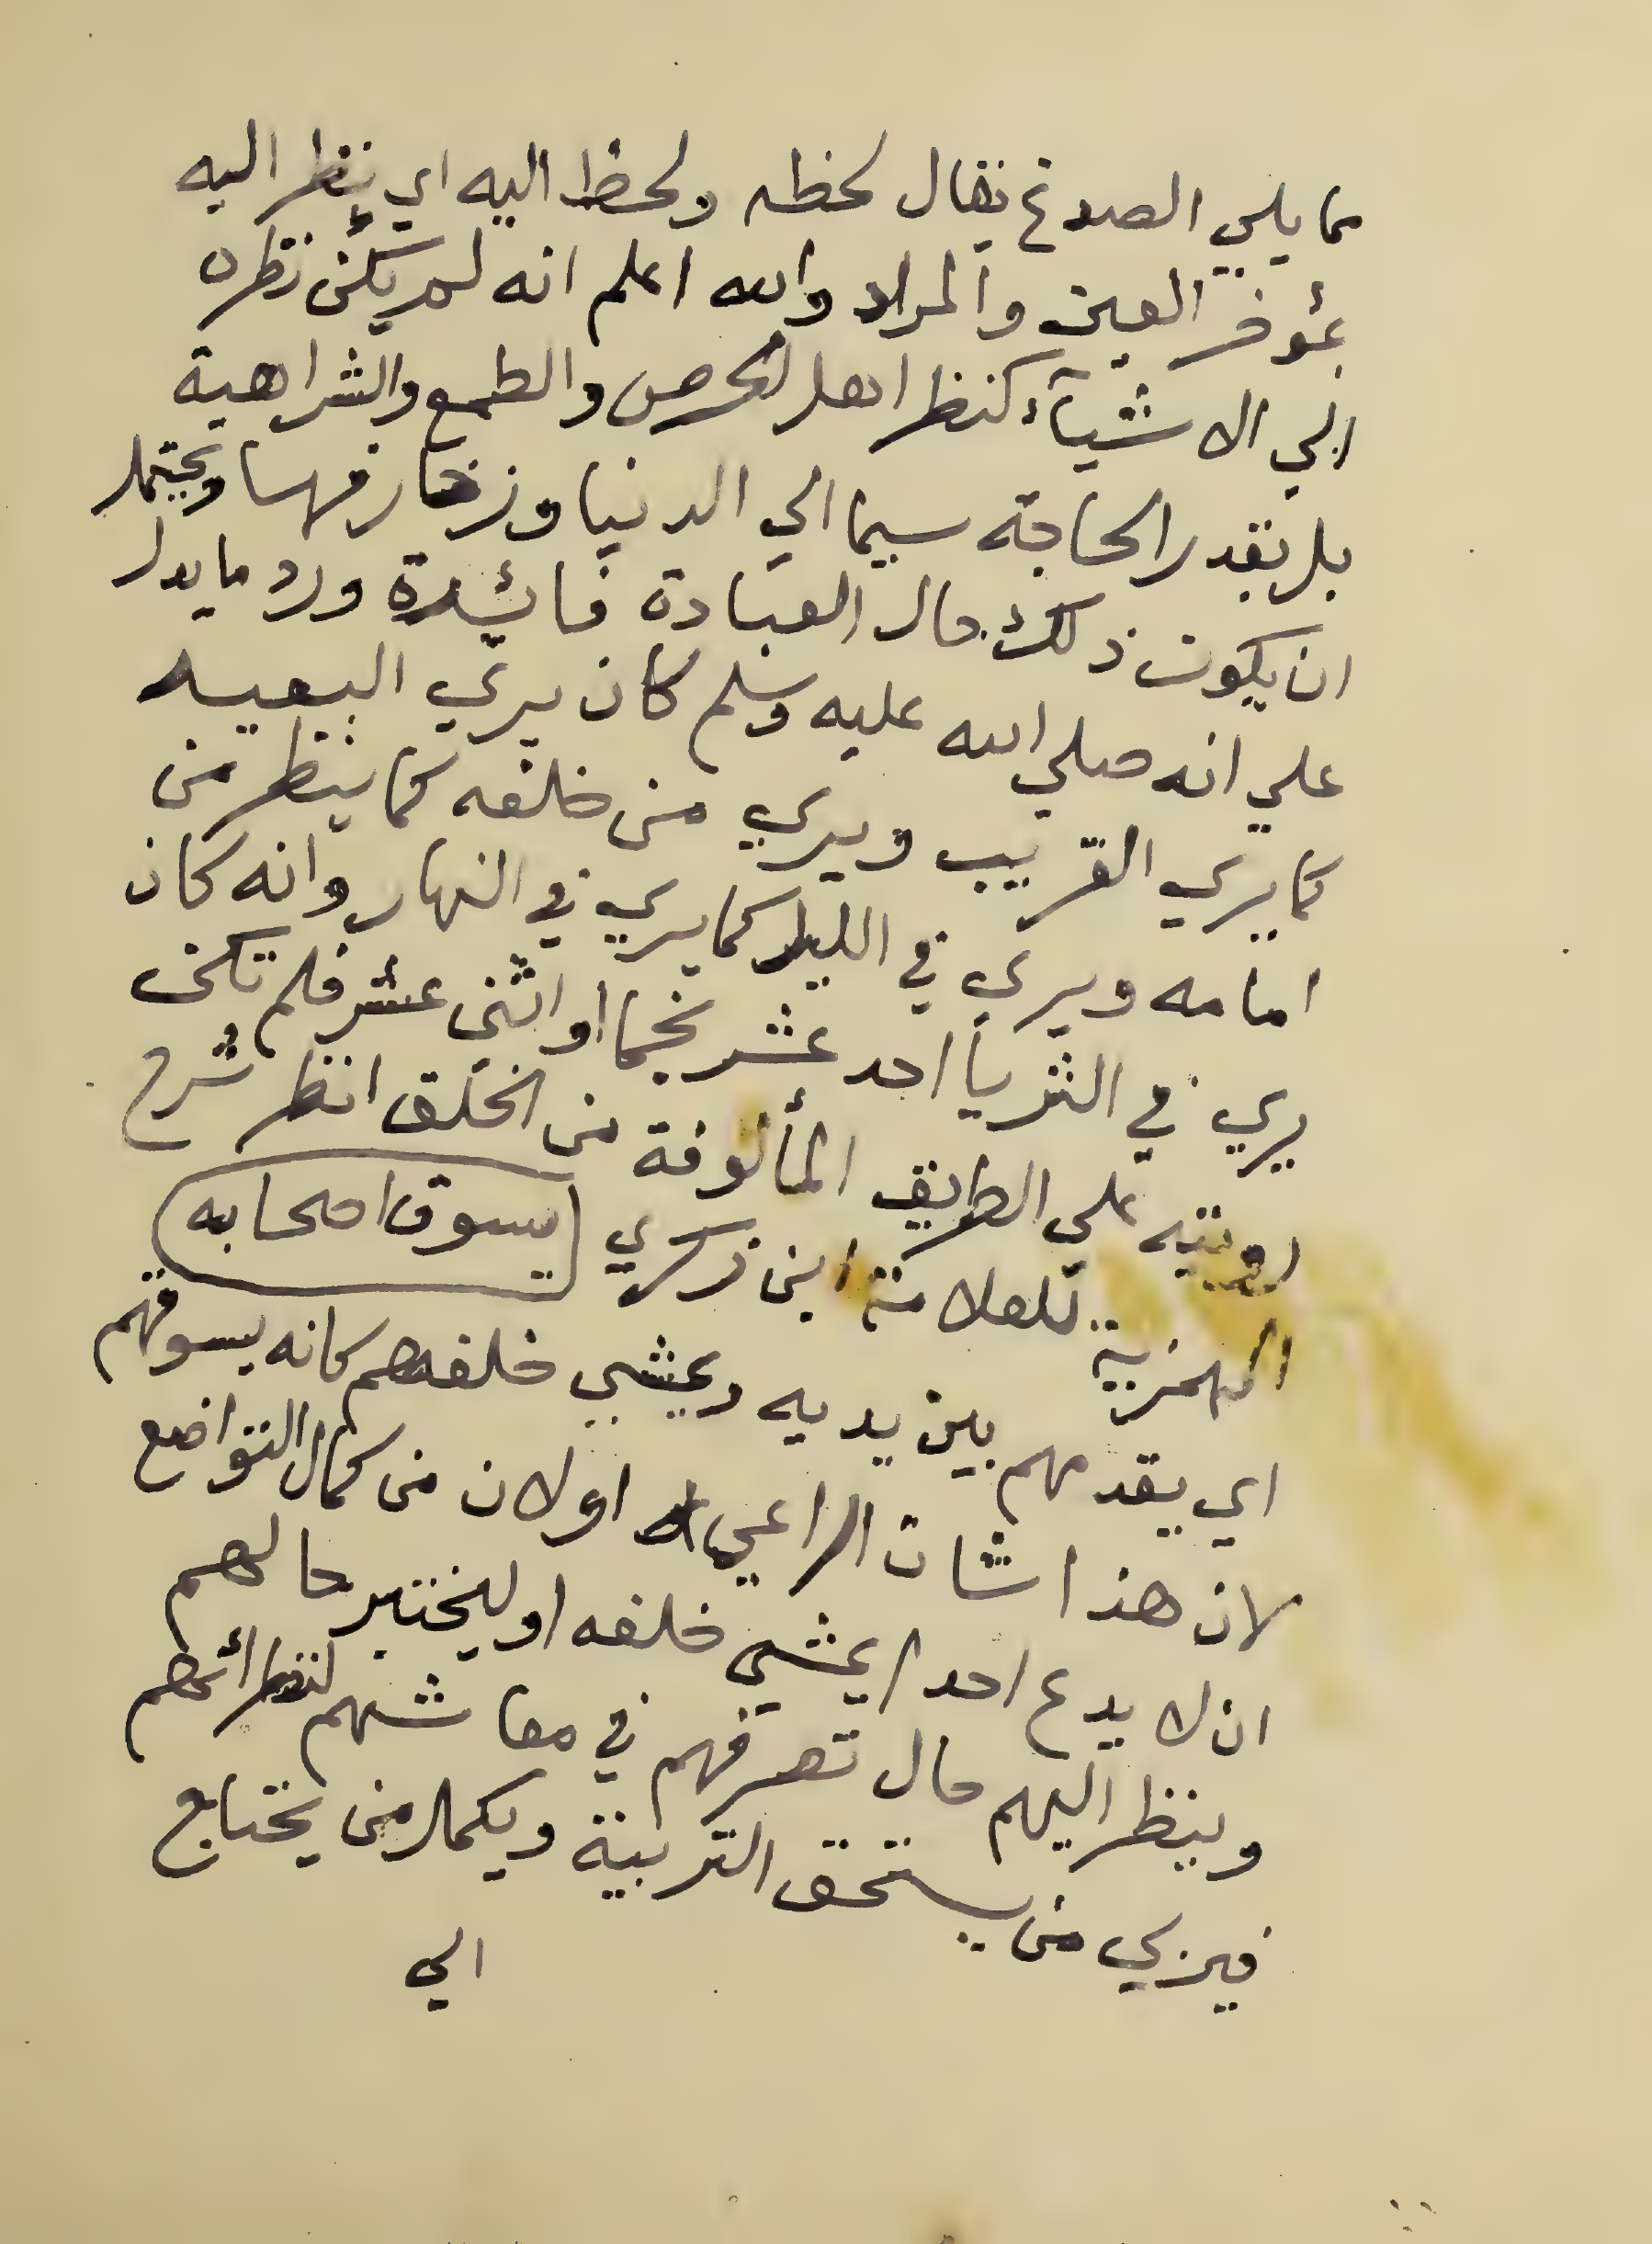 مما يلي الصدغ يقال لحظه ولحظ اليه اي ينظر اليه
بمؤخر العين والمراد والله اعلم انه لم يكن نظره
الي الاشيآء كنظر اهل الحرص والطمع والشراهية
بل بقدر الحاجة سيما الي الدنيا وزخارفها ويحتمل
ان يكون ذلك حال العبادة فائدة ورد ما يدل
علي انه صلي الله عليه وسلم كان يري البعيد
كما يري القريب ويري من خلفه كما ينظر من
امامه ويري في الليل كما يري في النهار وانه كان
يري في الثريا احد عشر نجما او اثني عشر فلم تكن
رويته علي الطرايق المألوفة من الخلق انظر شرح
الهمزية للعلامة ابن زكري يسوق اصحابه
اي يقدمهم بين يديه ويمشي خلفهم كانه يسوقهم
لان هذا شان الراعي او لان من كمال التواضع
ان لا يدع احدا يمشي خلفه او ليختبر حالهم
وينظر اليهم حال تصرفهم في معاشهم لنظرائهم
فيزكي من يستحق التربية ويكمل من يحتاج
الي